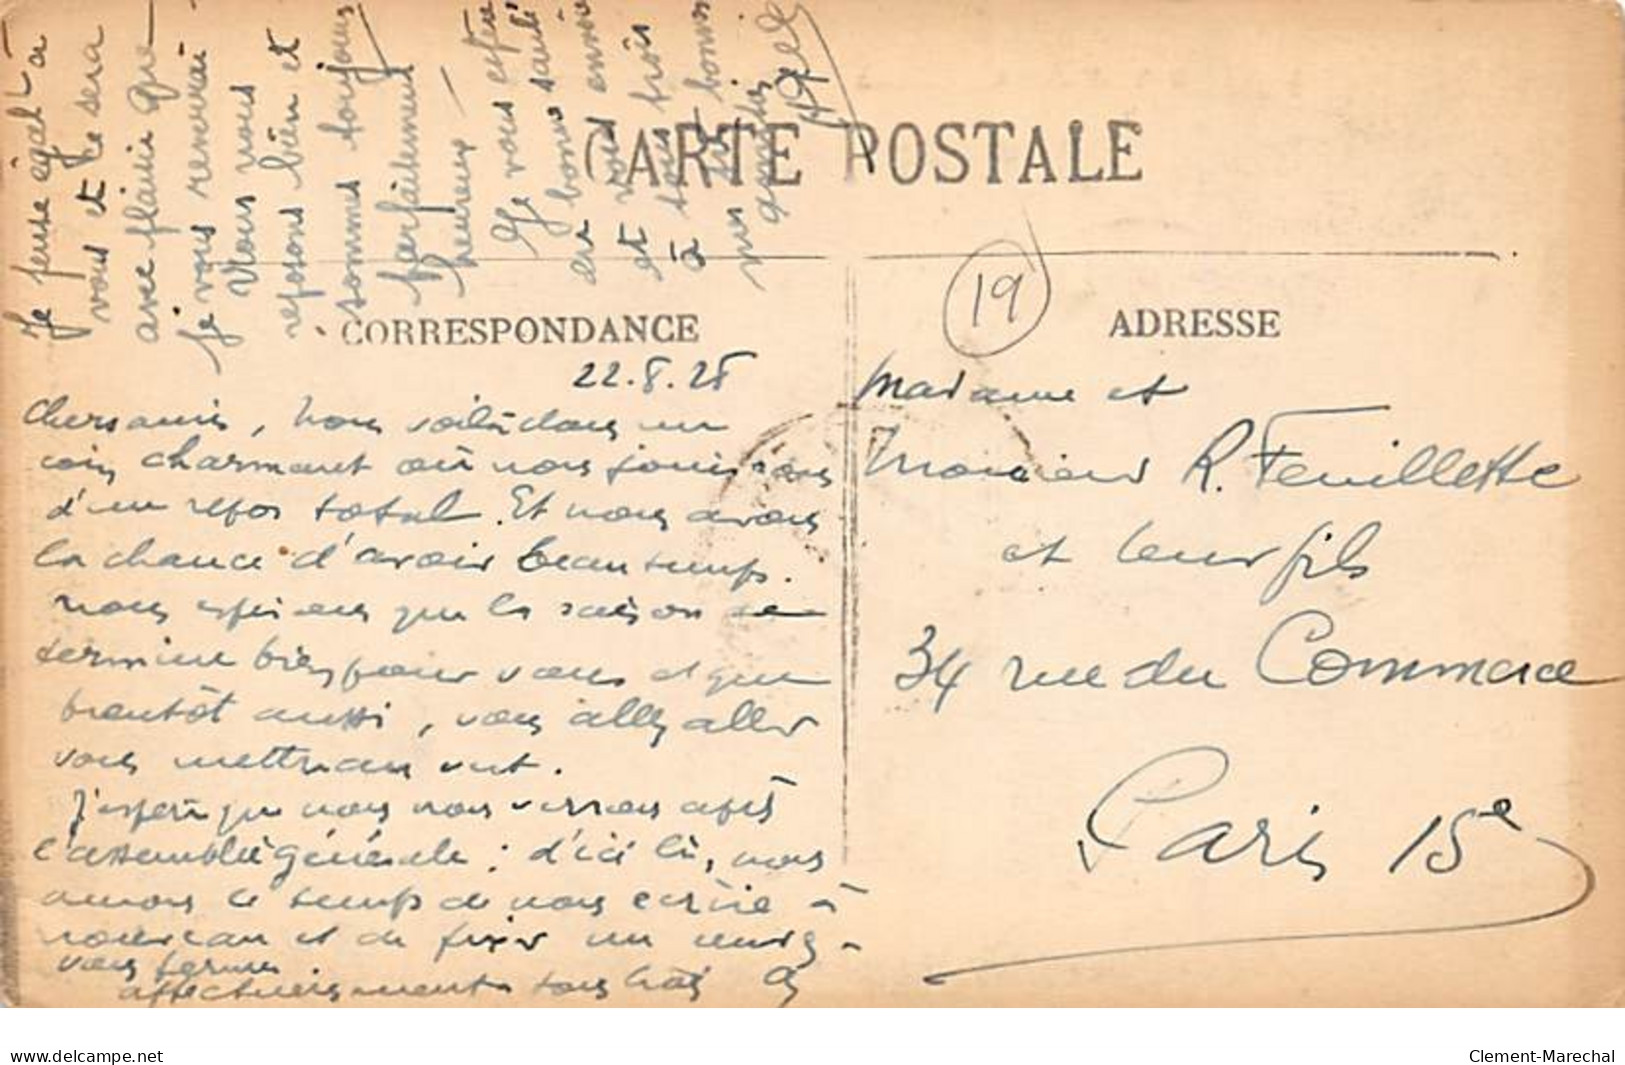 Je pense égalt à
vous et ce sera
avec plaisir que
je vous reverrai
Nous nous
reposons bien et
sommes toujours
parfaitement
heureux —
Je vous espère
en bonne santé
et vous envoie
à tous trois
mes bonnes
amitiés
CARTE POSTALE
19
CORRESPONDANCE
ADRESSE
22.8.28
Chers amis, Nous voilà dans un
coin charmant où nous jouissons
d'un repos total. Et nous avons
la chance d'avoir beau temps.
Nous espérons que la saison se
termine bien pour vous et que
bientôt aussi, vous allez aller
vous mettre au vert.
J'espère que nous nous verrons après
l'assemblée générale ; d'ici là, nous
aurons le temps de nous écrire à
nouveau et de fixer un rendez-
vous ferme
affectueusement à tous trois
Madame et
Monsieur R. Feuillette
et leur fils
34 rue du Commerce
Paris 15e
www.delcampe.net
Clement-Marechal